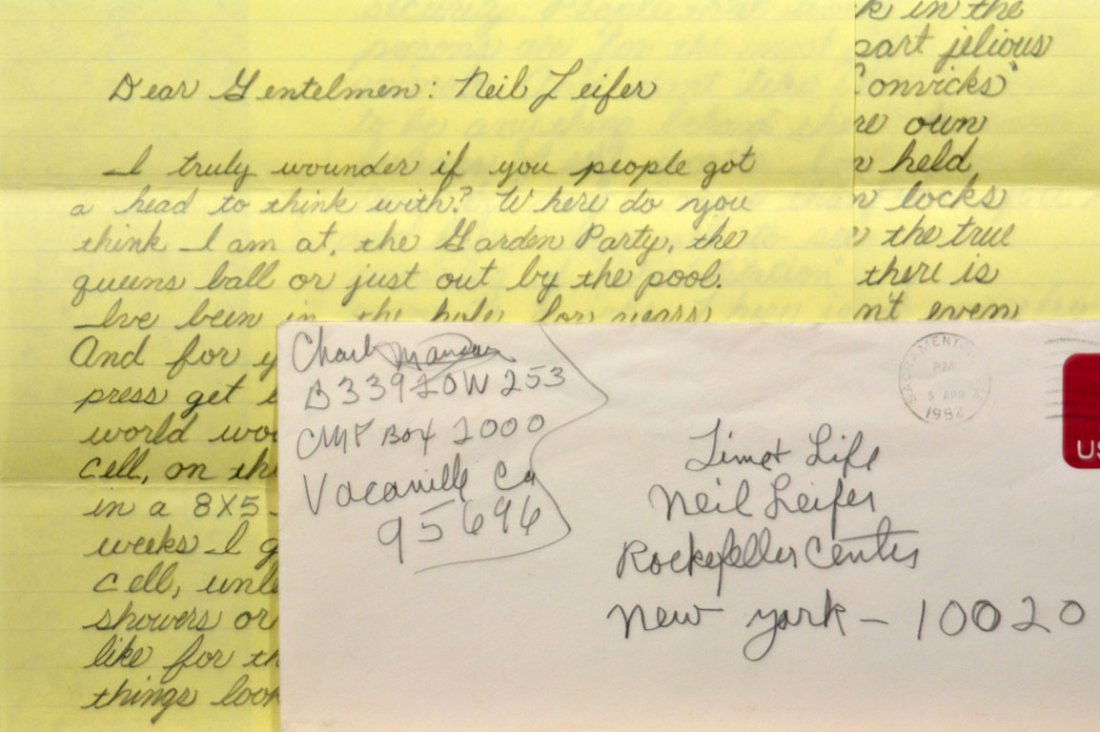 Dear Gentelmen: Neil Leifer
I truly wounder if you people got
a head to think with? Where do you
think I am at, the Garden Party, the
queens ball or just out by the pool.
Ive been in the hole for years
And for y
press get
world wo
cell, on th
in a 8X5
weeks I g
cell, unl
showers or
like for th
things look
k in the
part jelious
Convicks"
re own
held
n locks
the true
there is
n't even
Charl Manson
B33920W253
CMF Box 2000
Vacaville Ca
95696
SACRAMENTO
PM
APR
1982
Time & Life
Neil Leifer
Rockefeller Center
New York - 10020
US